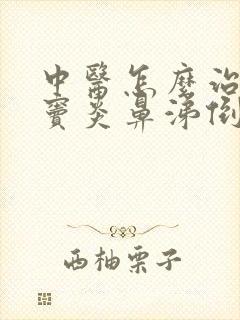 中醫怎麼治
竇炎鼻涕倒
西柚栗子